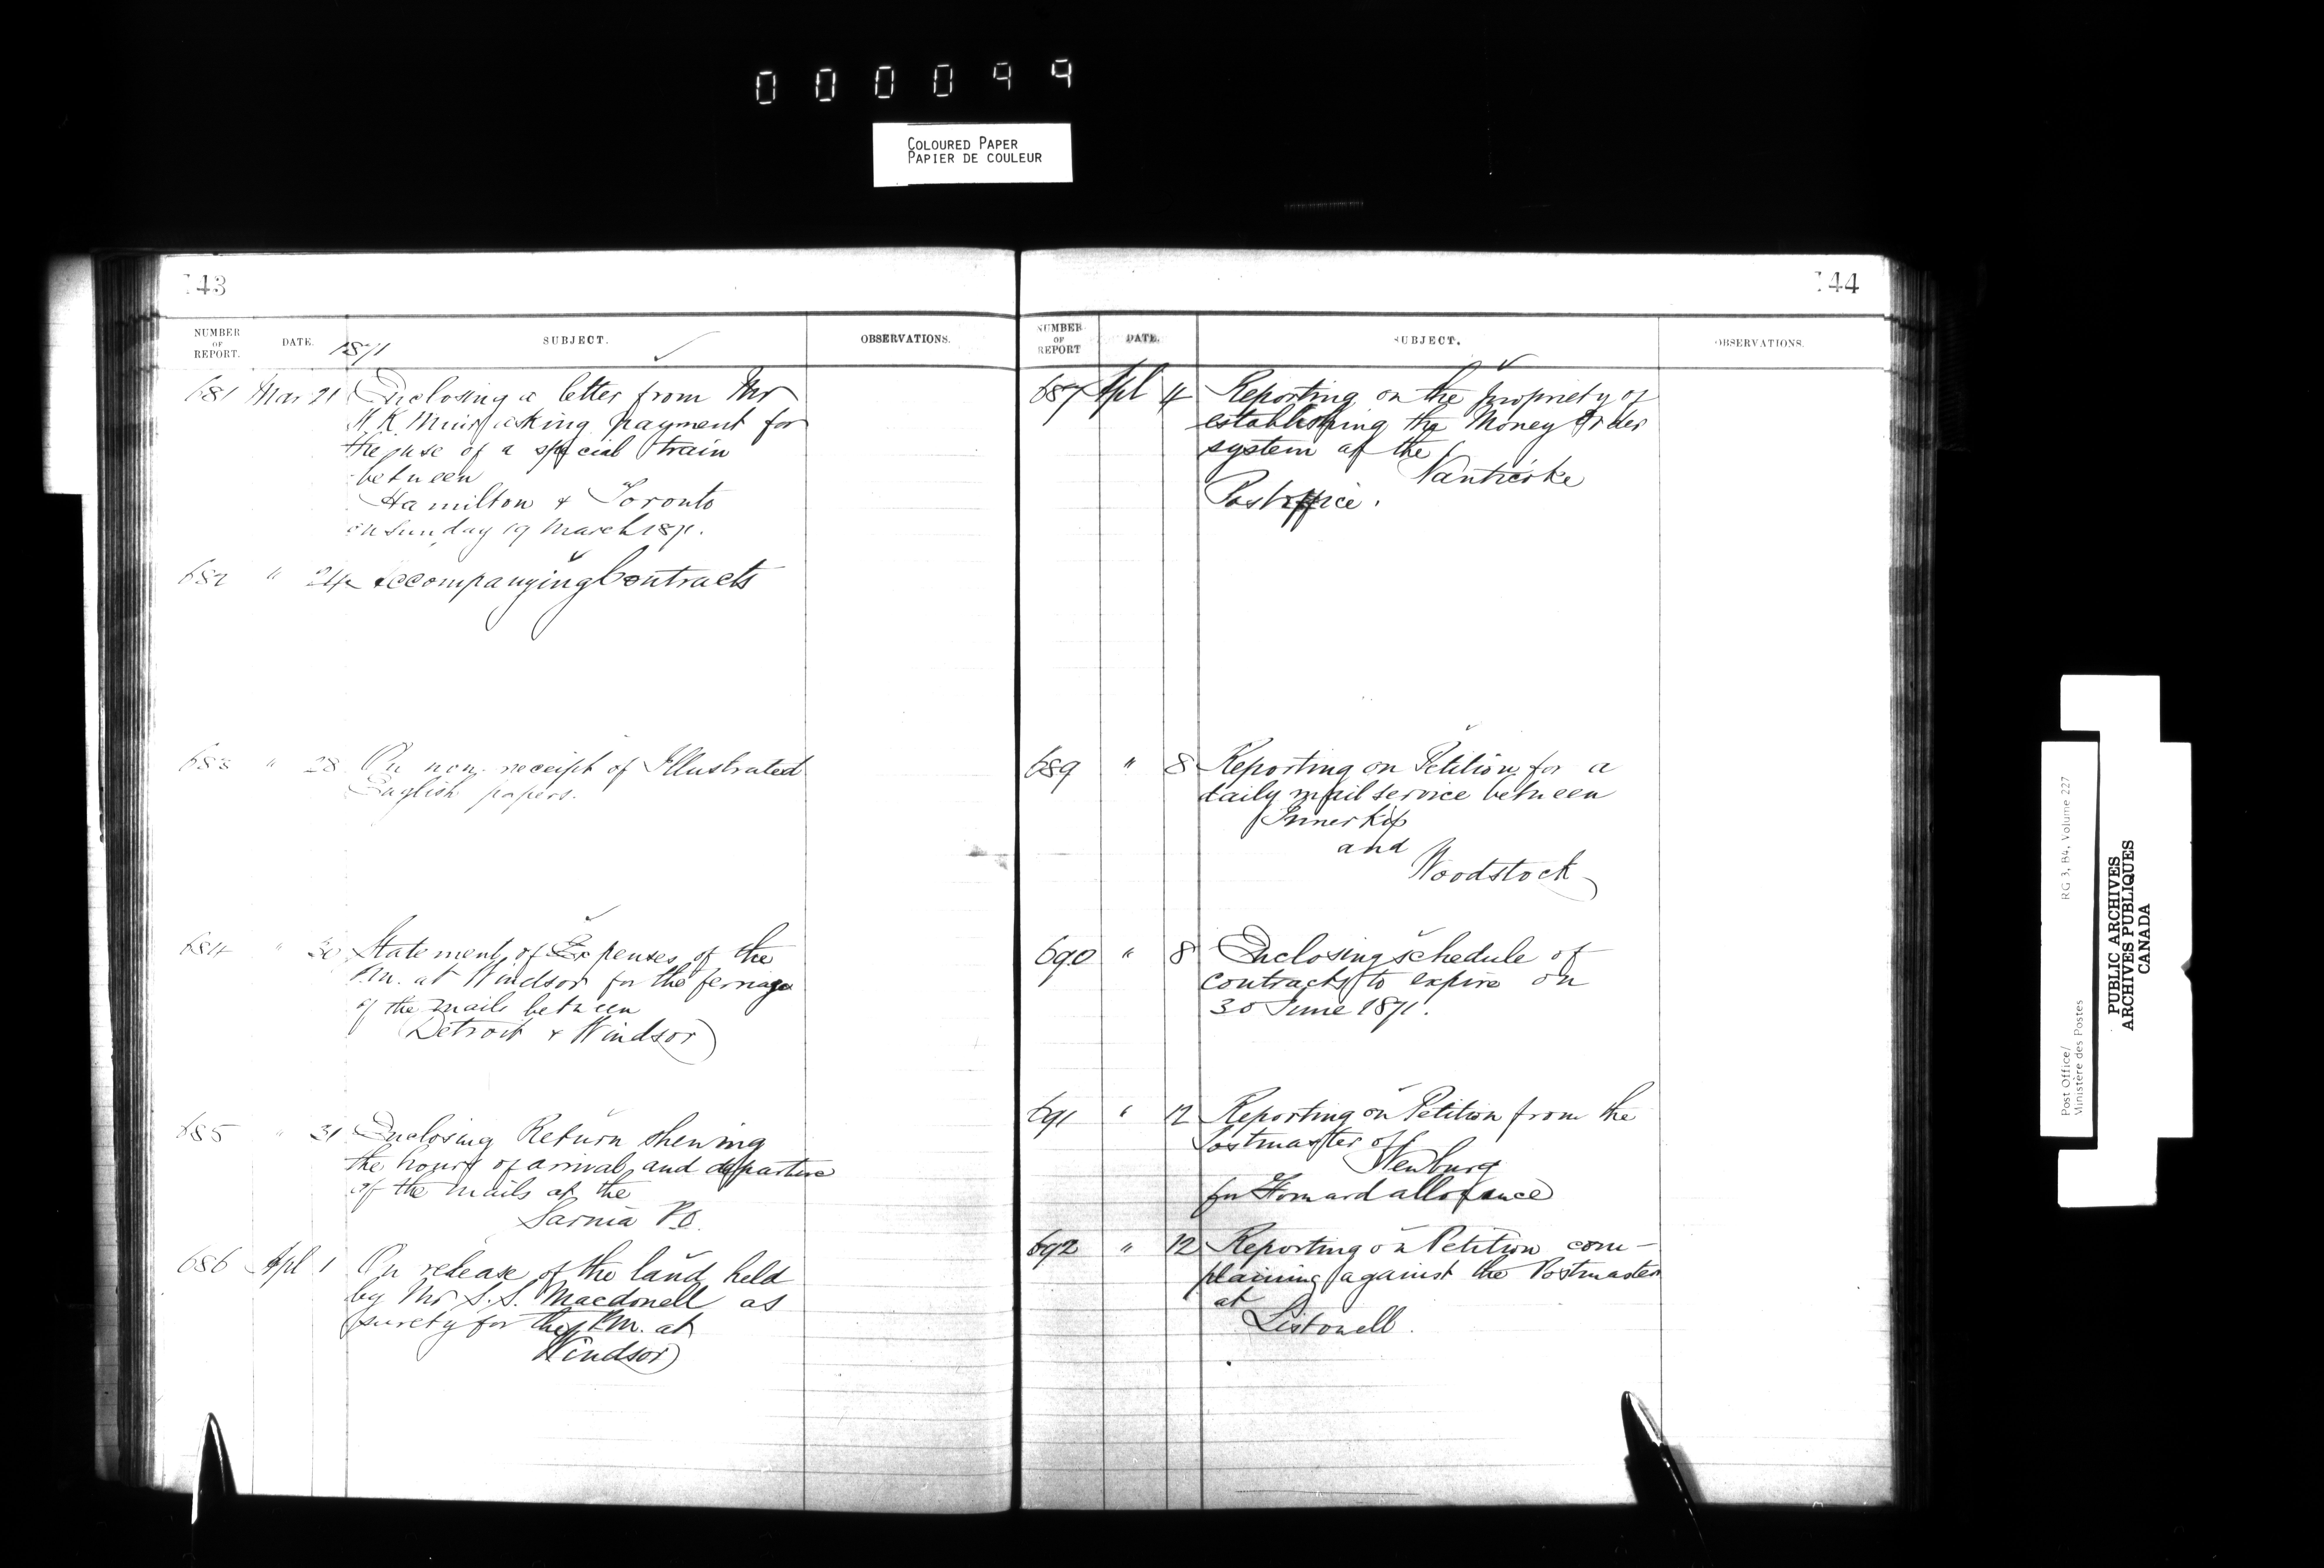 000099
COLOURED PAPER
PAPIER DE COULEUR
143
NUMBER OF REPORT. DATE. 1871 SUBJECT. OBSERVATIONS.
681 Mar 21 Enclosing a letter from Mr
W K Muir asking payment for
the use of a special train
between
Hamilton & Toronto
on Sunday 19 March 1871.
682 " 24 Accompanying Contracts
683 " 28 On non-receipt of Illustrated
English papers.
684 " 30 Statement of Expenses of the
P.M. at Windsor for the ferriage
of the mails between
Detroit & Windsor
685 " 31 Enclosing Return shewing
the hours of arrival and departure
of the mails at the
Sarnia P.O.
686 Apl 1 On release of the land held
by Mr S. S. Macdonell as
surety for the P.M. at
Windsor
144
NUMBER OF REPORT DATE. SUBJECT. OBSERVATIONS.
687 Apl 4 Reporting on the propriety of
establishing the Money Order
system at the
Nanticoke
Post office.
689 " 8 Reporting on Petition for a
daily mail service between
Innerkip
and
Woodstock
690 " 8 Enclosing schedule of
contracts to expire on
30 June 1871.
691 " 12 Reporting on Petition from the
Postmaster of
Newburg
for Forward allowance
692 " 12 Reporting on Petition com-
plaining against the Postmaster
at
Listowell.
Post Office/ RG 3, B4, Volume 227
Ministère des Postes
PUBLIC ARCHIVES
ARCHIVES PUBLIQUES
CANADA